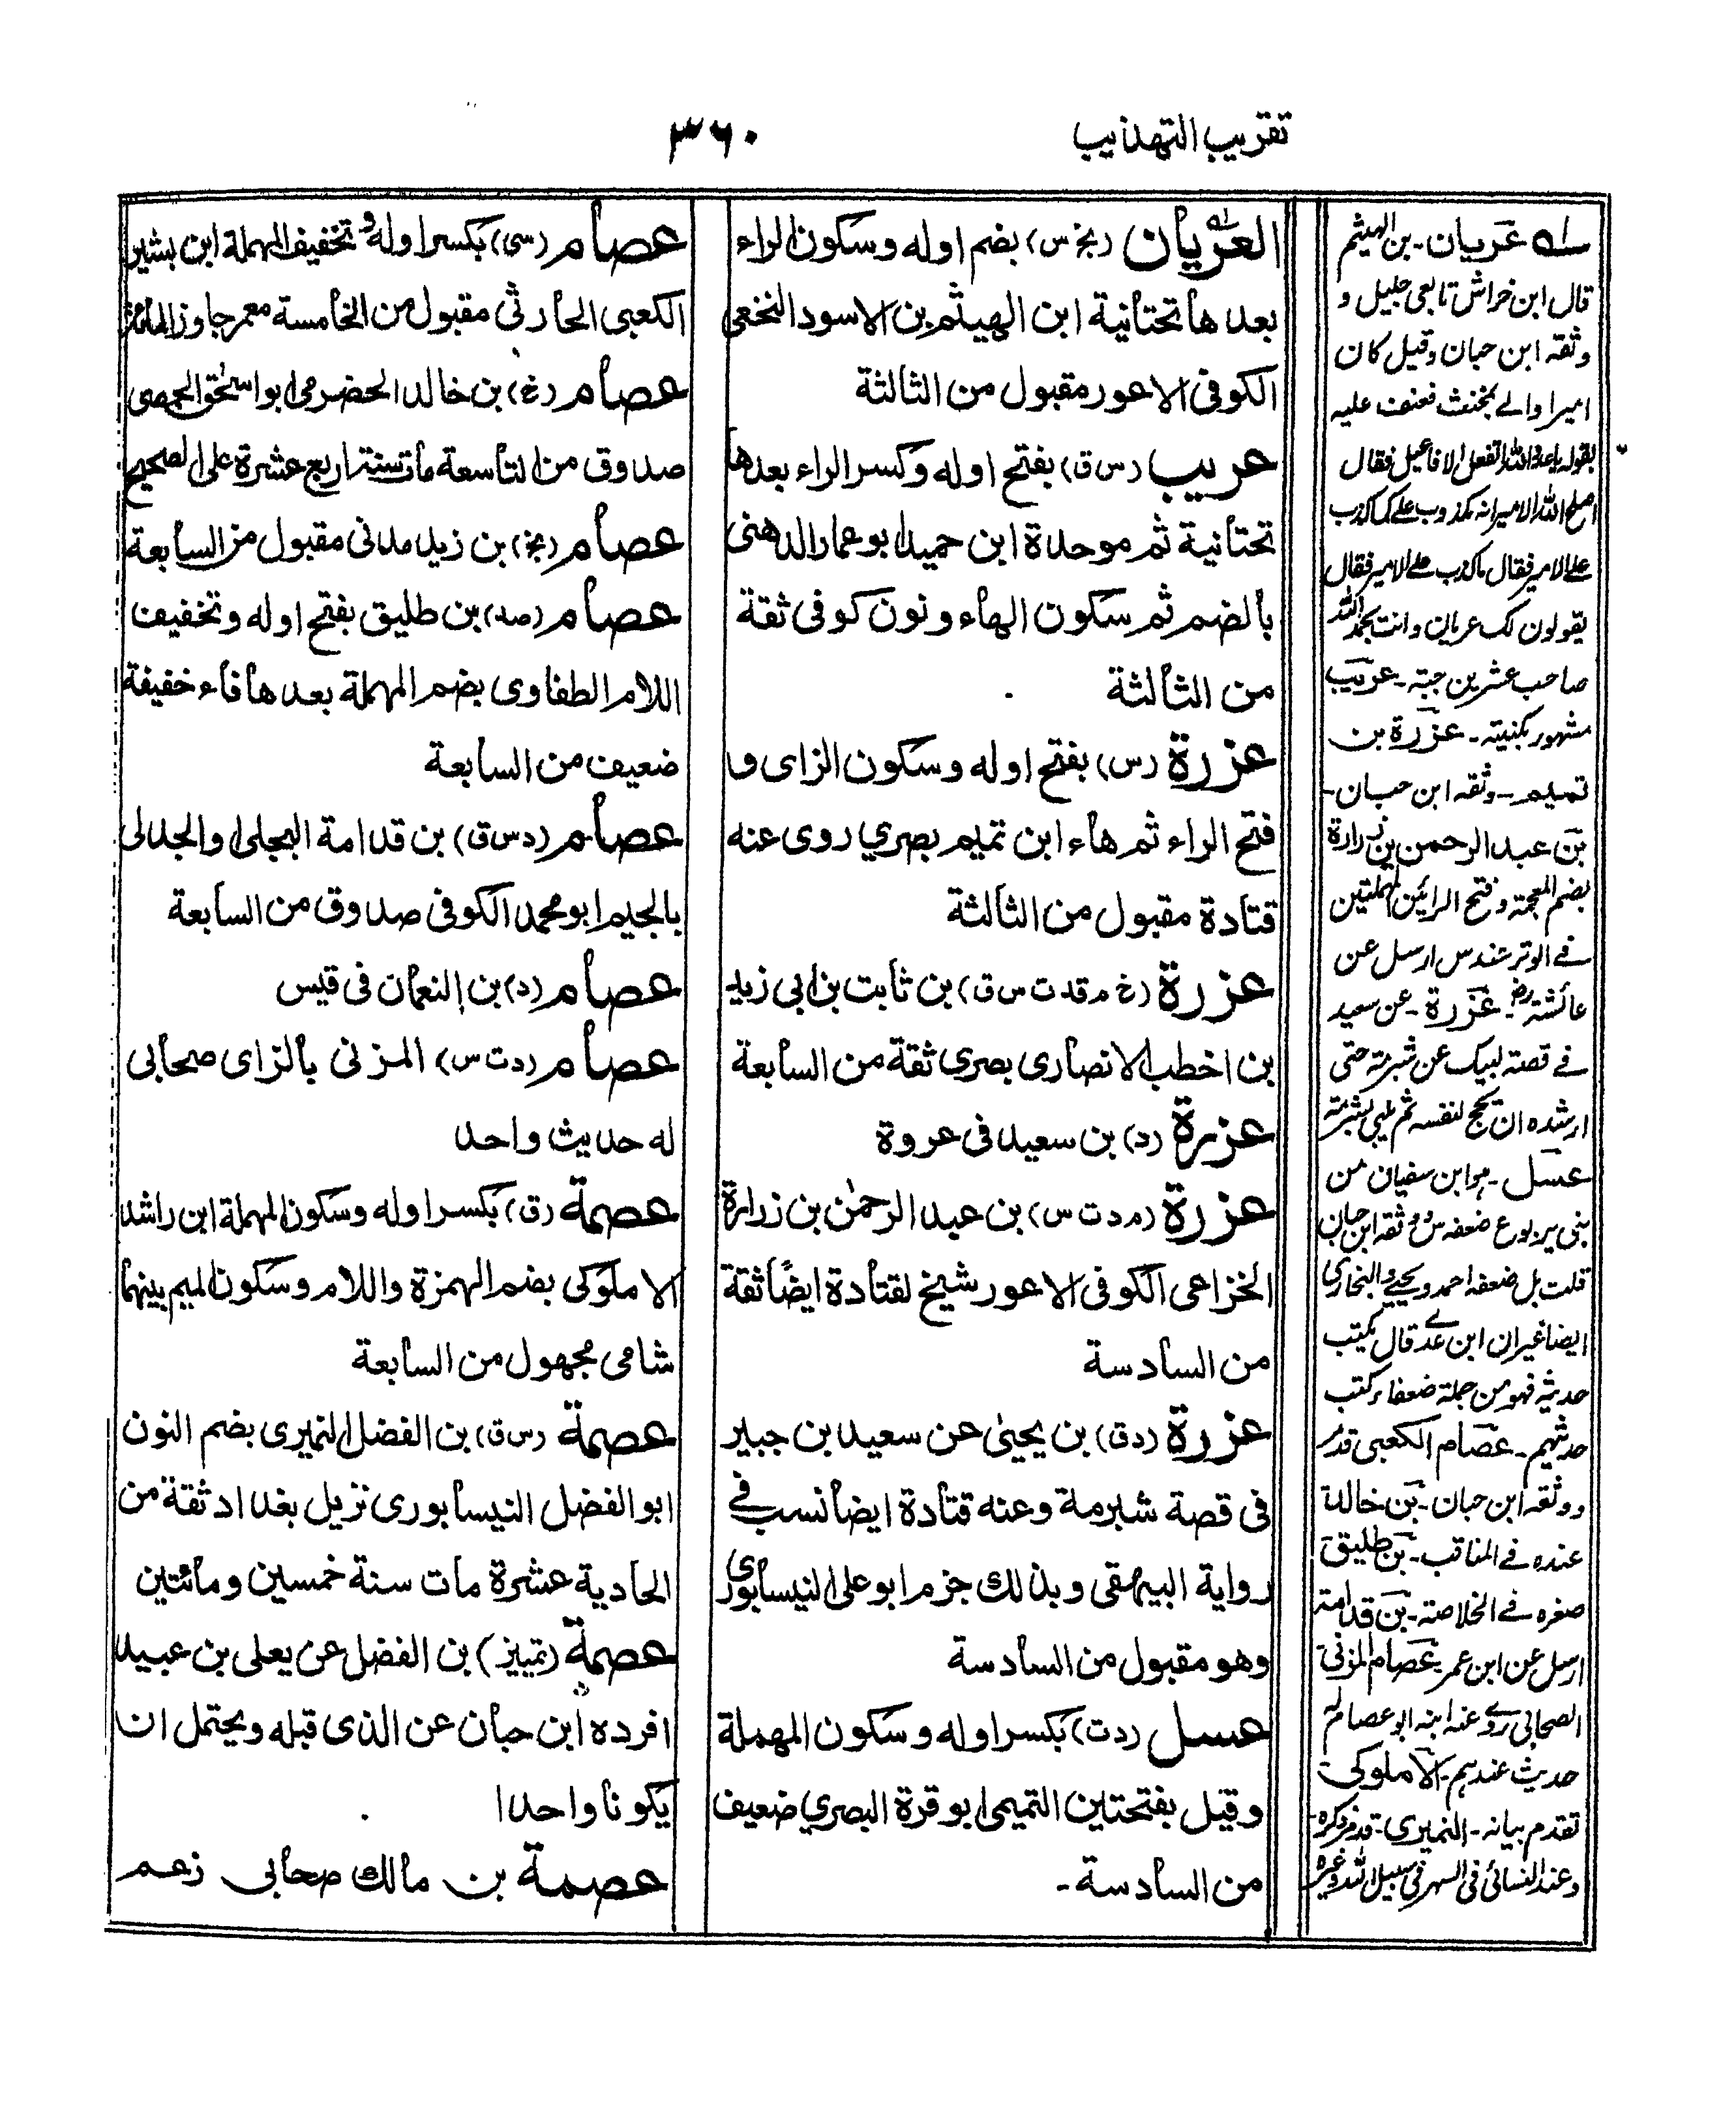 تقريب التهذيب
٣٦٠
العريان (بخ س) بضم اوله وسكون الراء
بعدها تحتانية ابن الهيثم بن الاسود النخعي
الكوفى الاعور مقبول من الثالثة
عريب (س ق) بفتح اوله وكسر الراء بعدها
تحتانية ثم موحدة ابن حميد ابو عمار الدهنى
بالضم ثم سكون الهاء ونون كوفى ثقة
من الثالثة
عزرة (س) بفتح اوله وسكون الزاى و
فتح الراء ثم هاء ابن تميم بصري روى عنه
قتادة مقبول من الثالثة
عزرة (خ م قد ت س ق) بن ثابت بن ابى زيد
بن اخطب الانصارى بصرى ثقة من السابعة
عزرة (د) بن سعيد فى عروة
عزرة (م د ت س) بن عبد الرحمٰن بن زرارة
الخزاعى الكوفى الاعور شيخ لقتادة ايضًا ثقة
من السادسة
عزرة (د ق) بن يحيٰى عن سعيد بن جبير
فى قصة شبرمة وعنه قتادة ايضا نسب فى
رواية البيهقى وبذلك جزم ابو على النيسابورى
وهو مقبول من السادسة
عسل (د ت) بكسر اوله وسكون المهملة
وقيل بفتحتين التميمى ابو قرة البصري ضعيف
من السادسة-
عصام (سى) بكسر اوله وتخفيف المهملة ابن بشير
الكعبى الحارثى مقبول من الخامسة معمر جاوز المائة
عصام (خ) بن خالد الحضرمى ابو اسحٰق الحمصى
صدوق من التاسعة مات سنة اربع عشرة على الصحيح
عصام (بخ) بن زيد مدنى مقبول من السابعة
عصام (صد) بن طليق بفتح اوله وتخفيف
اللام الطفاوى بضم المهملة بعدها فاء خفيفة
ضعيف من السابعة
عصام (د س ق) بن قدامة البجلى او الجدلى
بالجيم ابو محمد الكوفى صدوق من السابعة
عصام (د) بن النعمان فى قيس
عصام (د ت س) المزنى بالزاى صحابى
له حديث واحد
عصمة (ق) بكسر اوله وسكون المهملة ابن راشد
الاملوكى بضم الهمزة واللام وسكون الميم بينهما
شامى مجهول من السابعة
عصمة (س ق) بن الفضل النميرى بضم النون
ابو الفضل النيسابورى نزيل بغداد ثقة من
الحادية عشرة مات سنة خمسين ومائتين
عصمة (تمييز) بن الفضل عن يعلى بن عبيد
افرده ابن حبان عن الذى قبله ويحتمل ان
يكونا واحدا
عصمة بن مالك صحابى زعم
له عريان- بن الهيثم
قال ابن خراش تابعى جليل و
وثقه ابن حبان وقيل كان
اميرا والے بمخنث فعنف عليه
بقوله يا عدو الله اتفعل الافاعيل فقال
اصلح الله الامير انه مكذوب علے كما كذب
علے الامير فقال ما كذب علے الامير فقال
يقولون لك عريان وانت بحمد الله
صاحب عشرين جبة- عريب
مشهور بكنيته- عزرة بن
تميم- وثقه ابن حبان-
بن عبد الرحمن بن زرارة
بضم المعجمة وفتح الرائين المهملتين
فے الوتر عند س ارسل عن
عائشة رض- عزرة- عن سعيد
فے قصة لبيك عن شبرمة حتى
ارشده ان يحج لنفسه ثم يلبى لشبرمة
عسل- هو ابن سفيان من
بنى يربوع ضعفه س ووثقه ابن حبان
قلت بل ضعفه احمد ويحيے والبخارى
ايضا غير ان ابن عدے قال يكتب
حديثه فهو من جملة ضعفاء كتب
حديثهم- عصام الكعبى قد مر
ووثقه ابن حبان- بن خالد
عنده فے المناقب- بن طليق
صغره فے الخلاصة- بن قدامة
ارسل عن ابن عمر- عصام المزنى
الصحابى روے عنه ابنه ابو عصام له
حديث عندهم- الاملوكى
تقدم بيانه- النميرى- قد مر ذكره-
وعند النسائى فى السهر فى سبيل الله وغيره